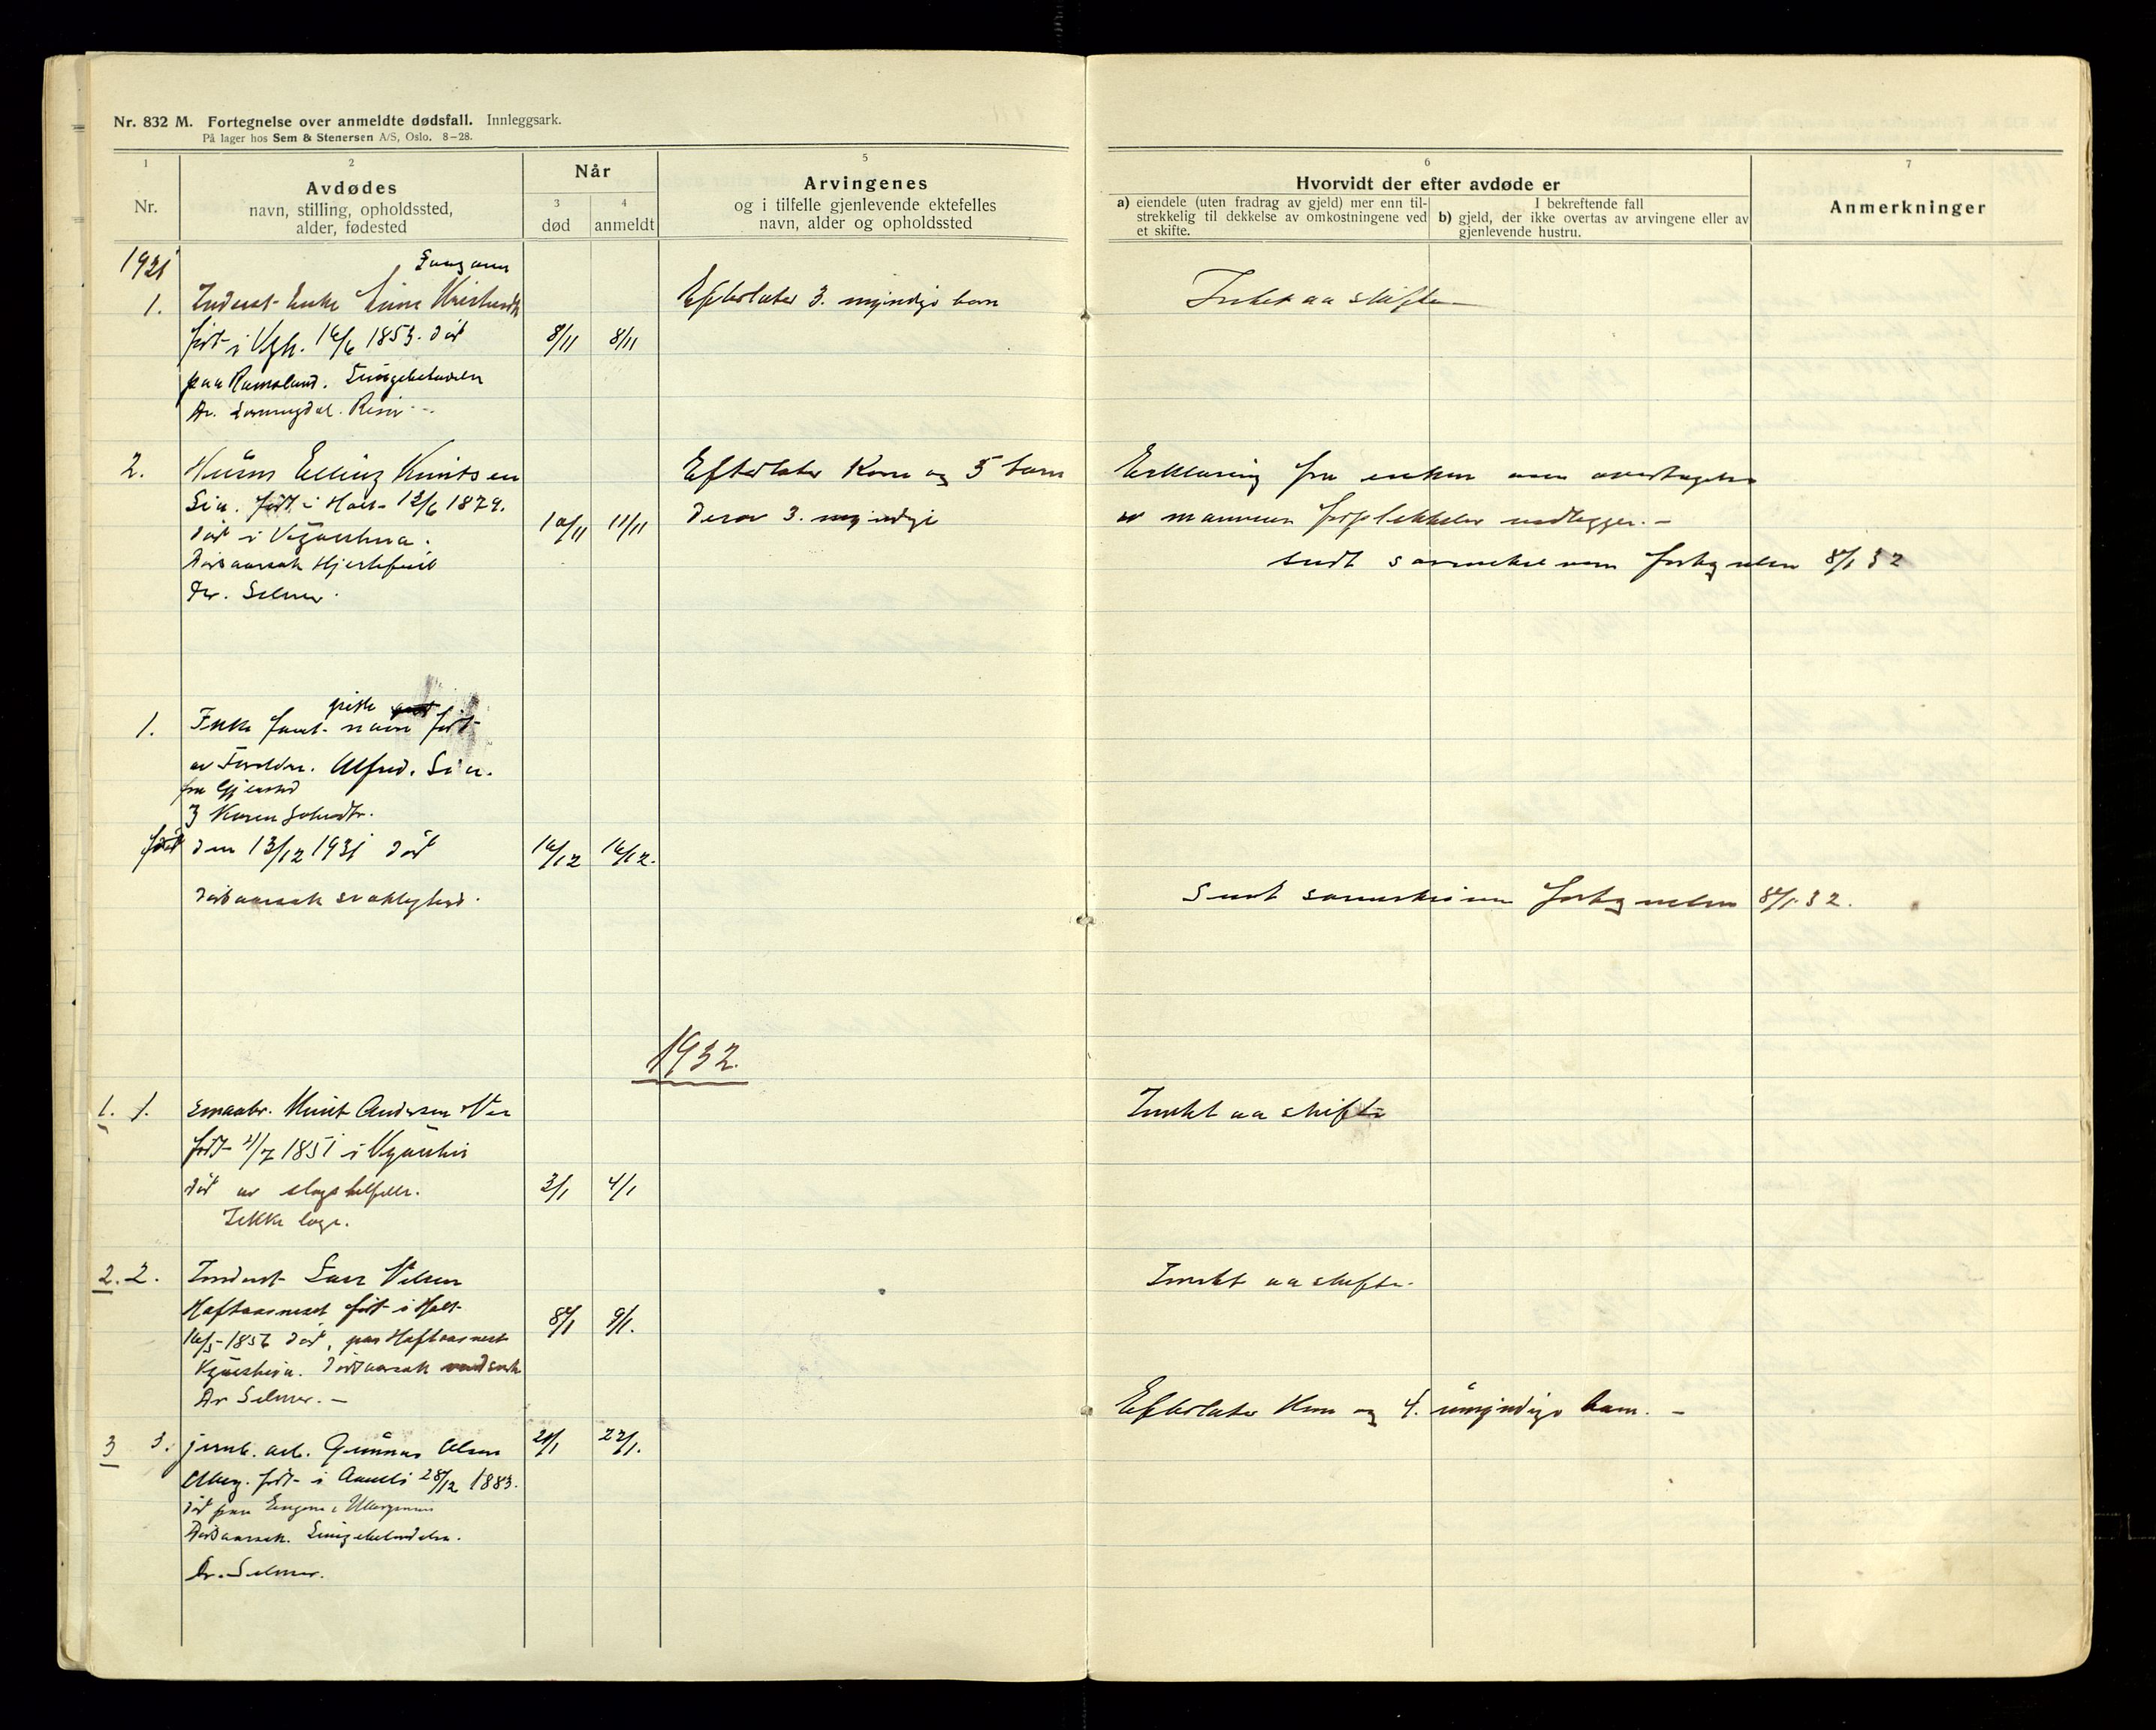 Nr. 832 M. Fortegnelse over anmeldte dødsfall. Innleggsark.
På lager hos Sem & Stenersen A/S, Oslo. 8–28.
1
Nr.
2
Avdødes
navn, stilling, opholdssted,
alder, fødested
Når
3
død
4
anmeldt
5
Arvingenes
og i tilfelle gjenlevende ektefelles
navn, alder og opholdssted
6
Hvorvidt der efter avdøde er
a) eiendele (uten fradrag av gjeld) mer enn til-
strekkelig til dekkelse av omkostningene ved
et skifte.
I bekreftende fall
b) gjeld, der ikke overtas av arvingene eller av
gjenlevende hustru.
7
Anmerkninger
1931
1. Inderst Enke
født i 16/6 1853. død 8/11 8/11
paa Ramsland. Lungebetendelse
Dr. Risør
Efterlater 3. myndige barn
Intet aa skifte
2. Husm Elling Knutsen
Lia. født i Holt 12/6 1879.
død i Vegaarshei. 10/11 11/11
Dødsaarsak Hjertefeil
Dr. Selmer.
Efterlater Kone og 5 barn
derav 3. myndige
Erklæring fra enken om overtagelse
av mannens vedlegges.
sendt sorenskriveren fortegnelsen 8/1 32
1. Ikke navn født
av Foreldre. Alfred. Lia.
fra Gjerstad
Karen
født den 13/12 1931 død 16/12 16/12.
dødsaarsak svaklighed.
Sendt sorenskriveren fortegnelsen 8/1. 32.
1932.
1. 1. Smaabr. Knut Andersen
født 4/7 1851 i Vegaarshei
død av slagtilfelle. 3/1 4/1
Ikke læge.
Intet aa skifte
2. 2. Inderst Lars Nilsen
Haftaasneset født i Holt
16/5 1856 død, paa Haftaasneset 8/1 9/1.
Vegaarshei. Dødsaarsak
Dr Selmer. –
Intet aa skifte.
3 3. jernb. arb. Gunnar Olsen 21/1 22/1.
født i 28/12 1883.
død paa
Dødsaarsak. Lungebetendelse.
Dr. Selmer.
Efterlater Kone og 4. umyndige barn. –